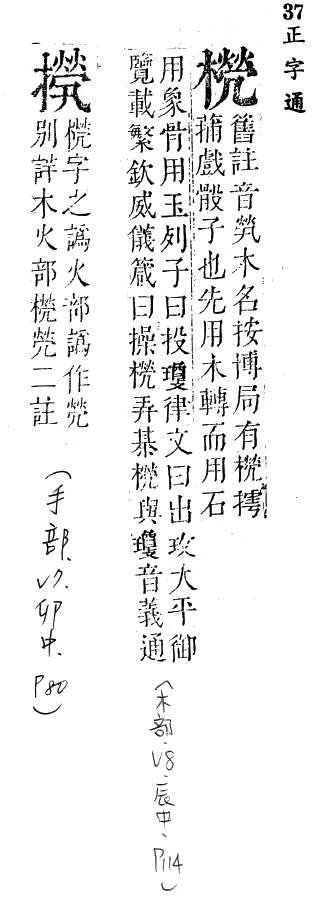 37正字通
橩
舊註音煢木名按博局有橩摴
蒱戲骰子也先用木轉而用石
用象骨用玉列子曰投瓊律文曰出玖大平御
覽載繁欽威儀箴曰操橩弄棊橩與瓊音義通
(木部、V8、辰中、P114)
橩字之譌火部譌作煢
別詳木火部橩煢二註
(手部、V7、卯中、P80)